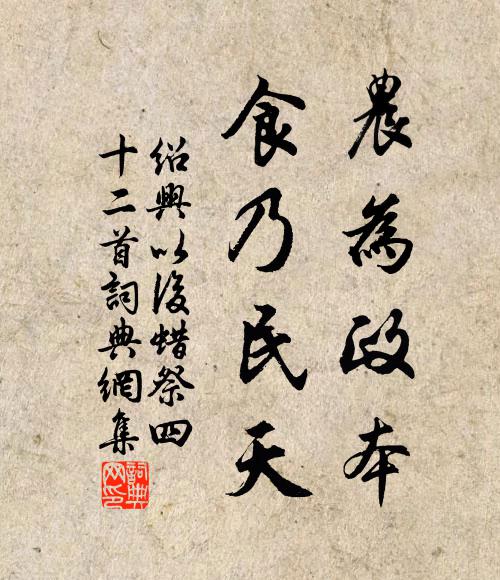 農為政本
食乃民天
紹興以後蜡祭四
十二首詞典網集
詞典網印